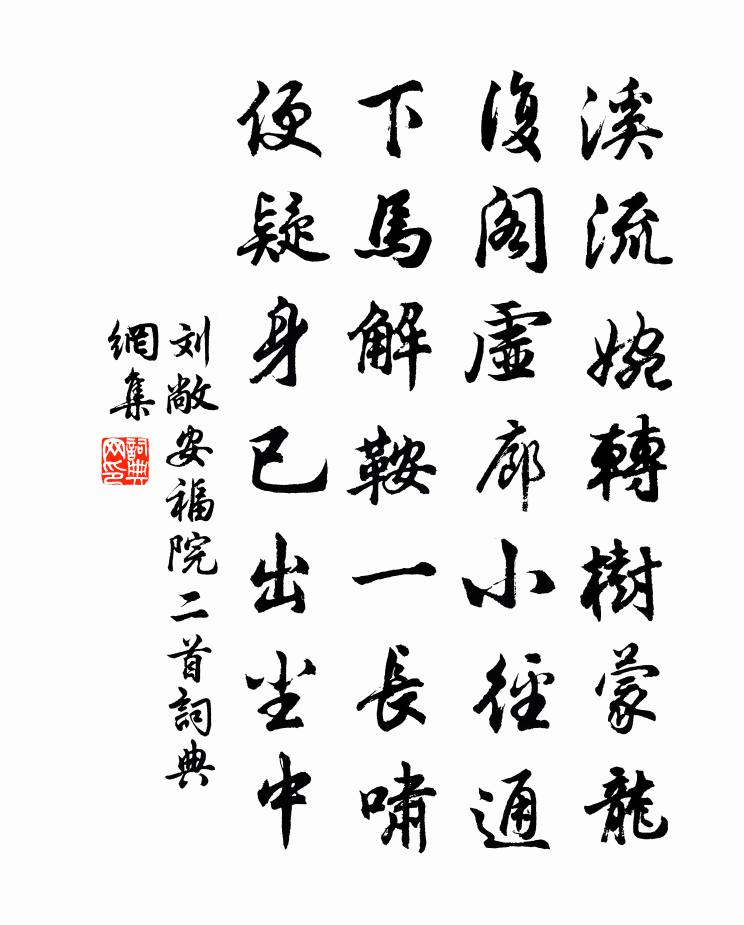 溪流婉轉樹蒙龍
復閣虛廊小徑通
下馬解鞍一長嘯
便疑身已出尘中
刘敞安福院二首詞典
網集
詞典
网印